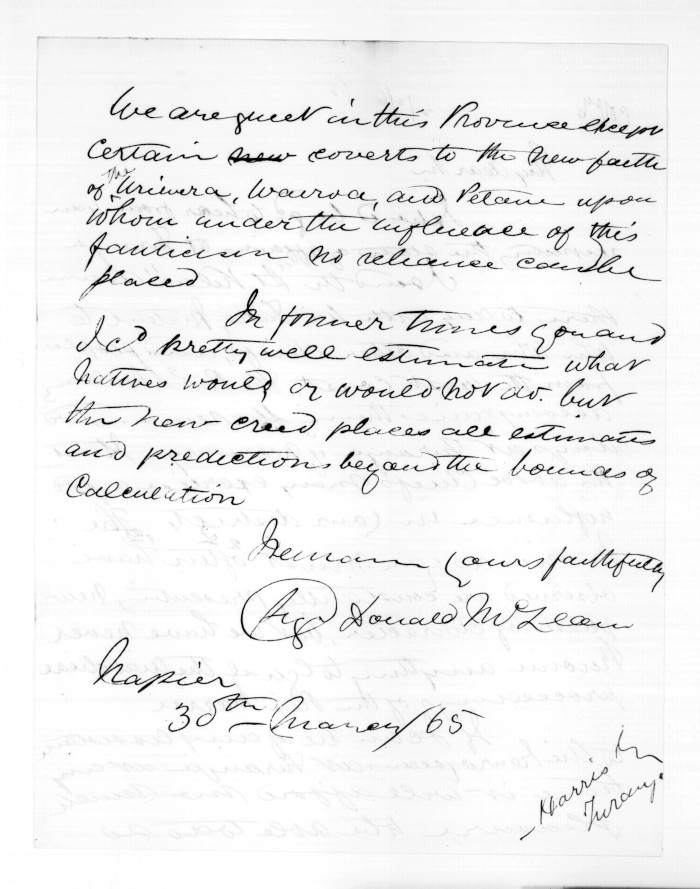 We are quiet in this Province except
certain new coverts to the new faith
of the Uriwera, Wairoa, and Petane upon
whom under the influence of this
fanticism no reliance can be
placed
In former times you and
I cd pretty well estimate what
natives would or would not do. but
the new creed places all estimates
and predictions beyond the bounds of
Calculation
I remain yours faithfully
Sigd Donald McLean
Napier
30th March/65
Harris
Turanga